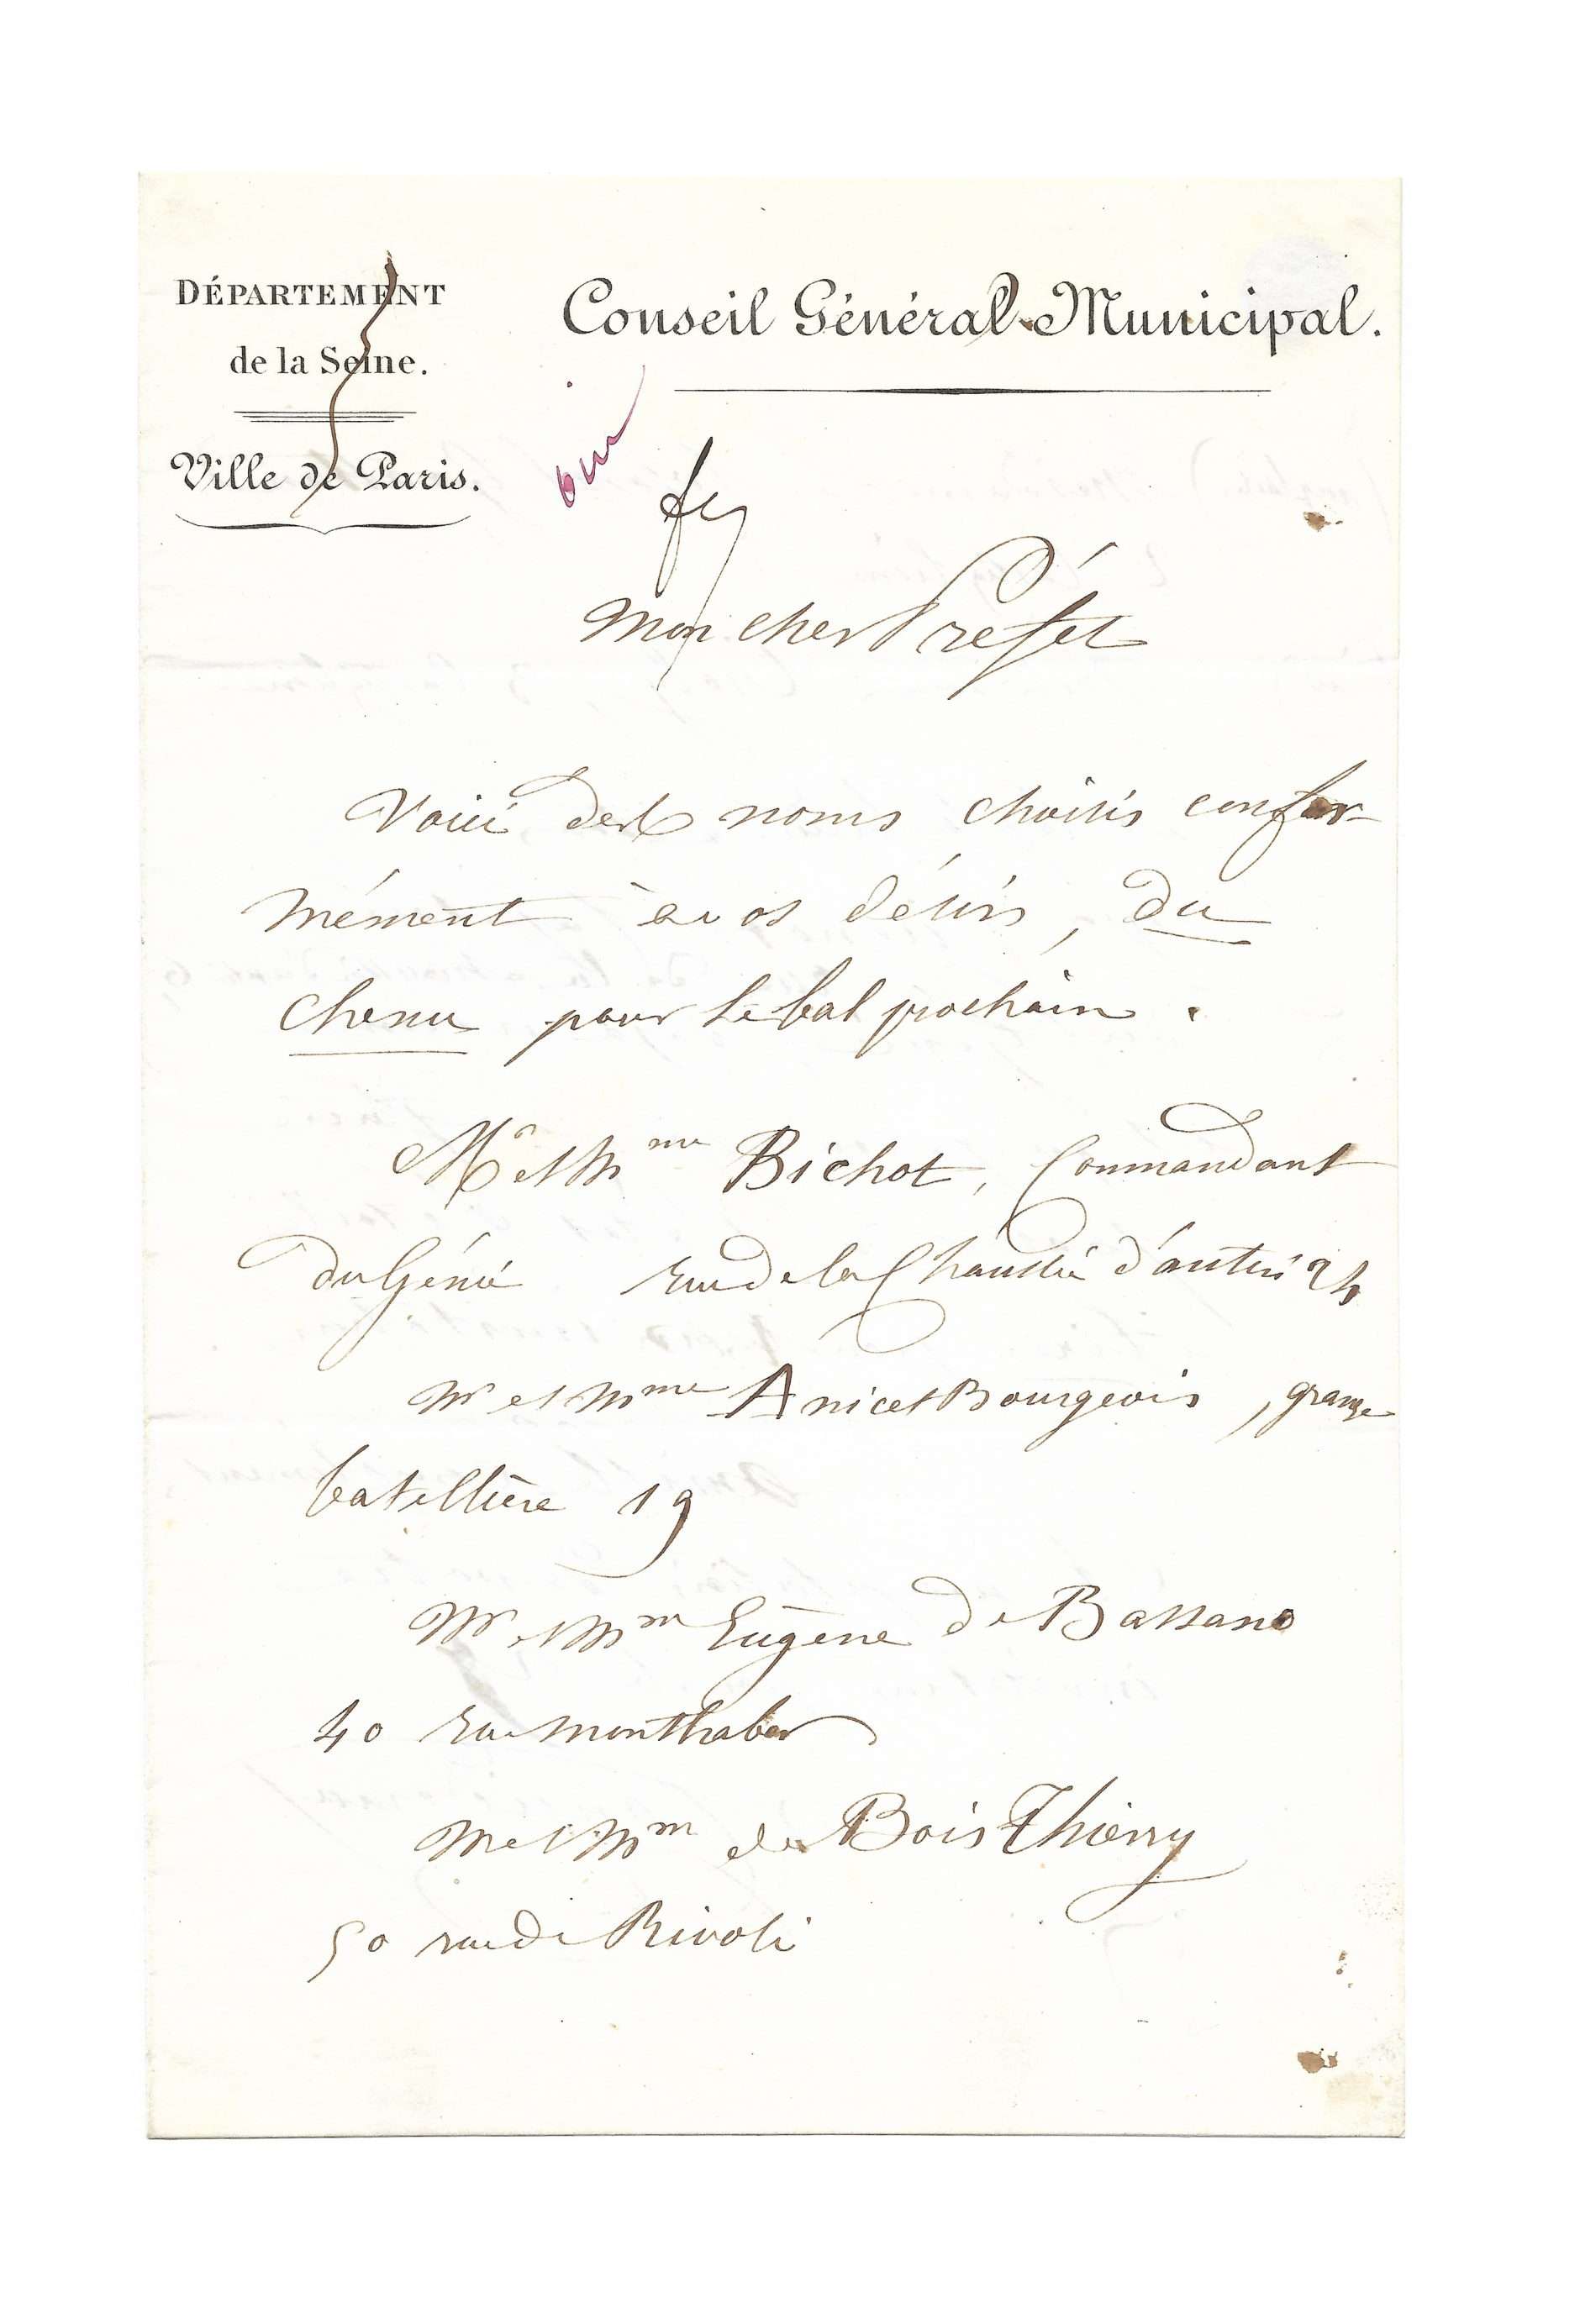 DÉPARTEMENT
de la Seine.
Ville de Paris.
Conseil Général Municipal.
oui
Mon cher Préfet
Voici des noms choisis confor-
mément à vos désirs, du
chenu pour le bal prochain.
Mr et Mme Bichot, Commandant
du Génie rue de la Chaussée d'antin 24
Mr et Mme Anicet Bourgeois, grange
batellière 19
Mr et Mm Eugène de Bassano
40 rue monthabor
M et Mm de Bois Thierry
50 rue de Rivoli